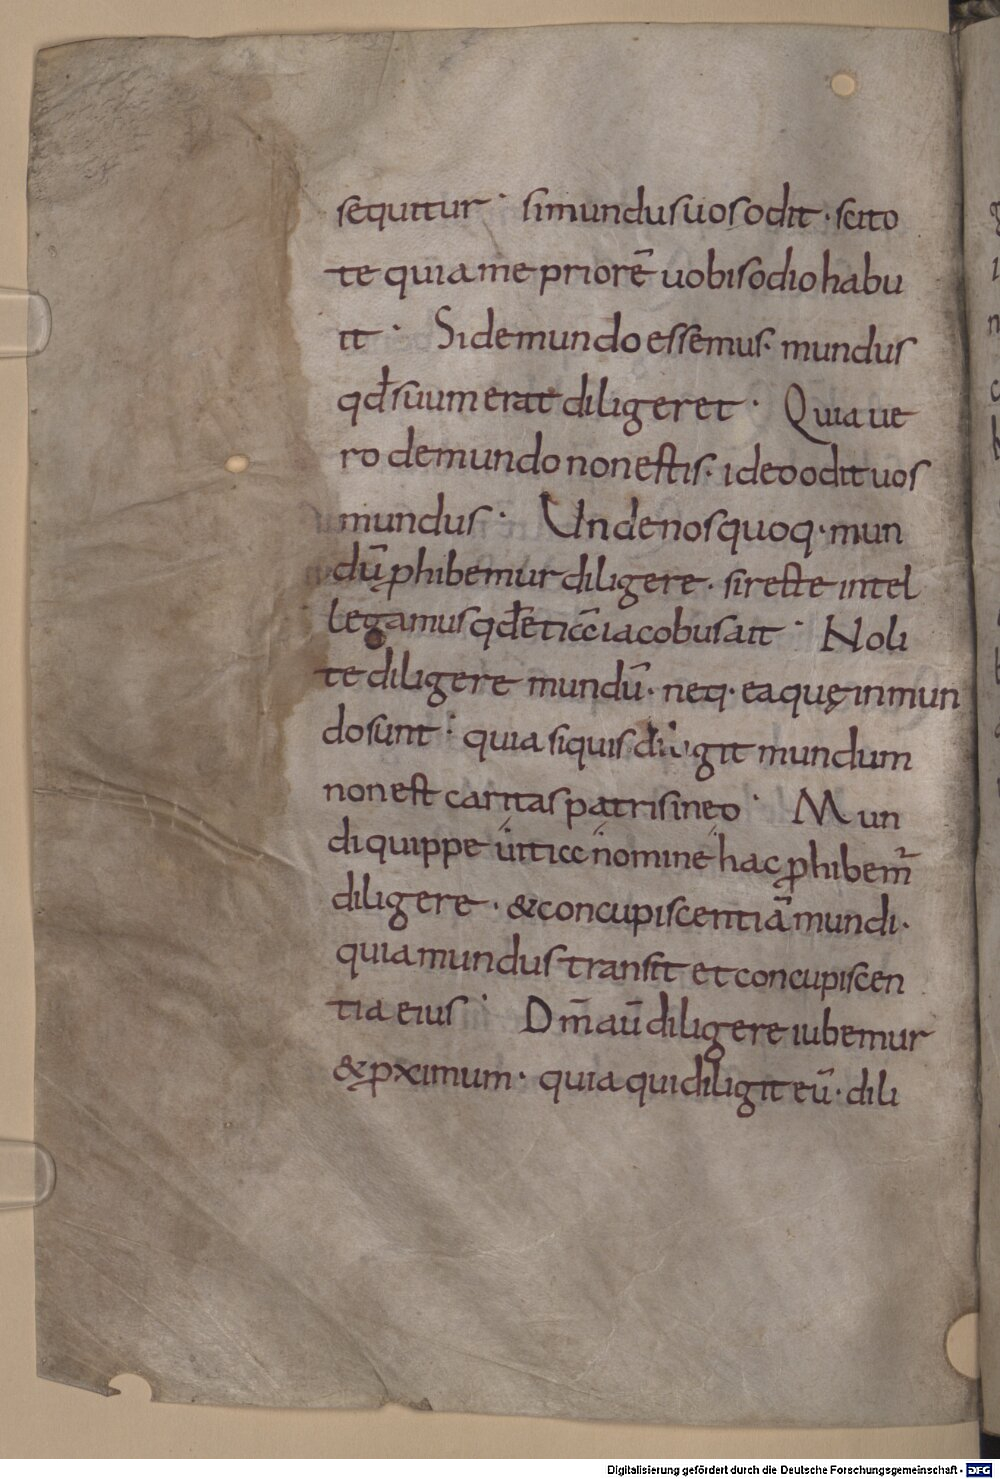 sequitur · si mundus uos odit · scito
te quia me priorē uobis odio habu
it · Si de mundo essemus · mundus
qđ suum erat diligeret · Quia ue
ro de mundo non estis · ideo odit uos
mundus · Unde nos quoq · mun
dū ꝓhibemur diligere · si recte intel
legamus qđ et icc iacobus ait · Noli
te diligere mundū · neq · ea quę in mun
do sunt · quia siquis diligit mundum
non est caritas patris in eo · Mun
di quippe uitiicc nomine hac ꝓhibem̄
diligere · & concupiscentiā mundi ·
quia mundus transit et concupiscen
tia eius · Dm̄ aū diligere iubemur
& ꝓximum · quia qui diligit eū · dili
Digitalisierung gefördert durch die Deutsche Forschungsgemeinschaft - DFG